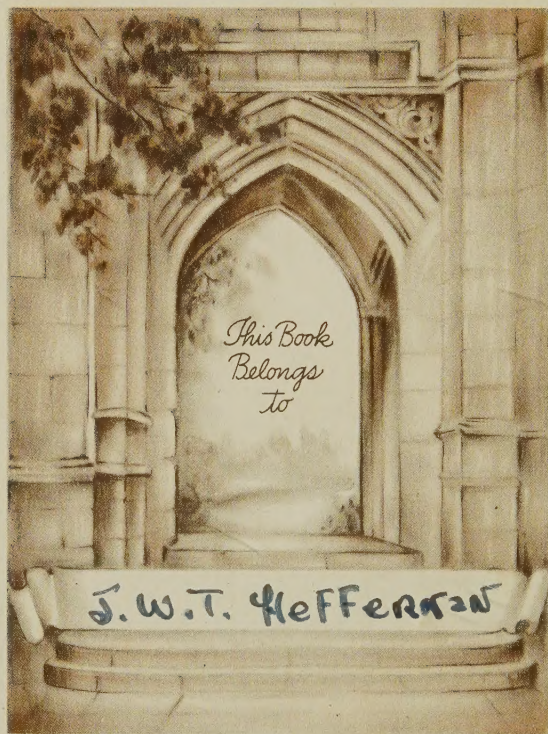 This Book
Belongs
to
J.W.T. HeFFeRNaN